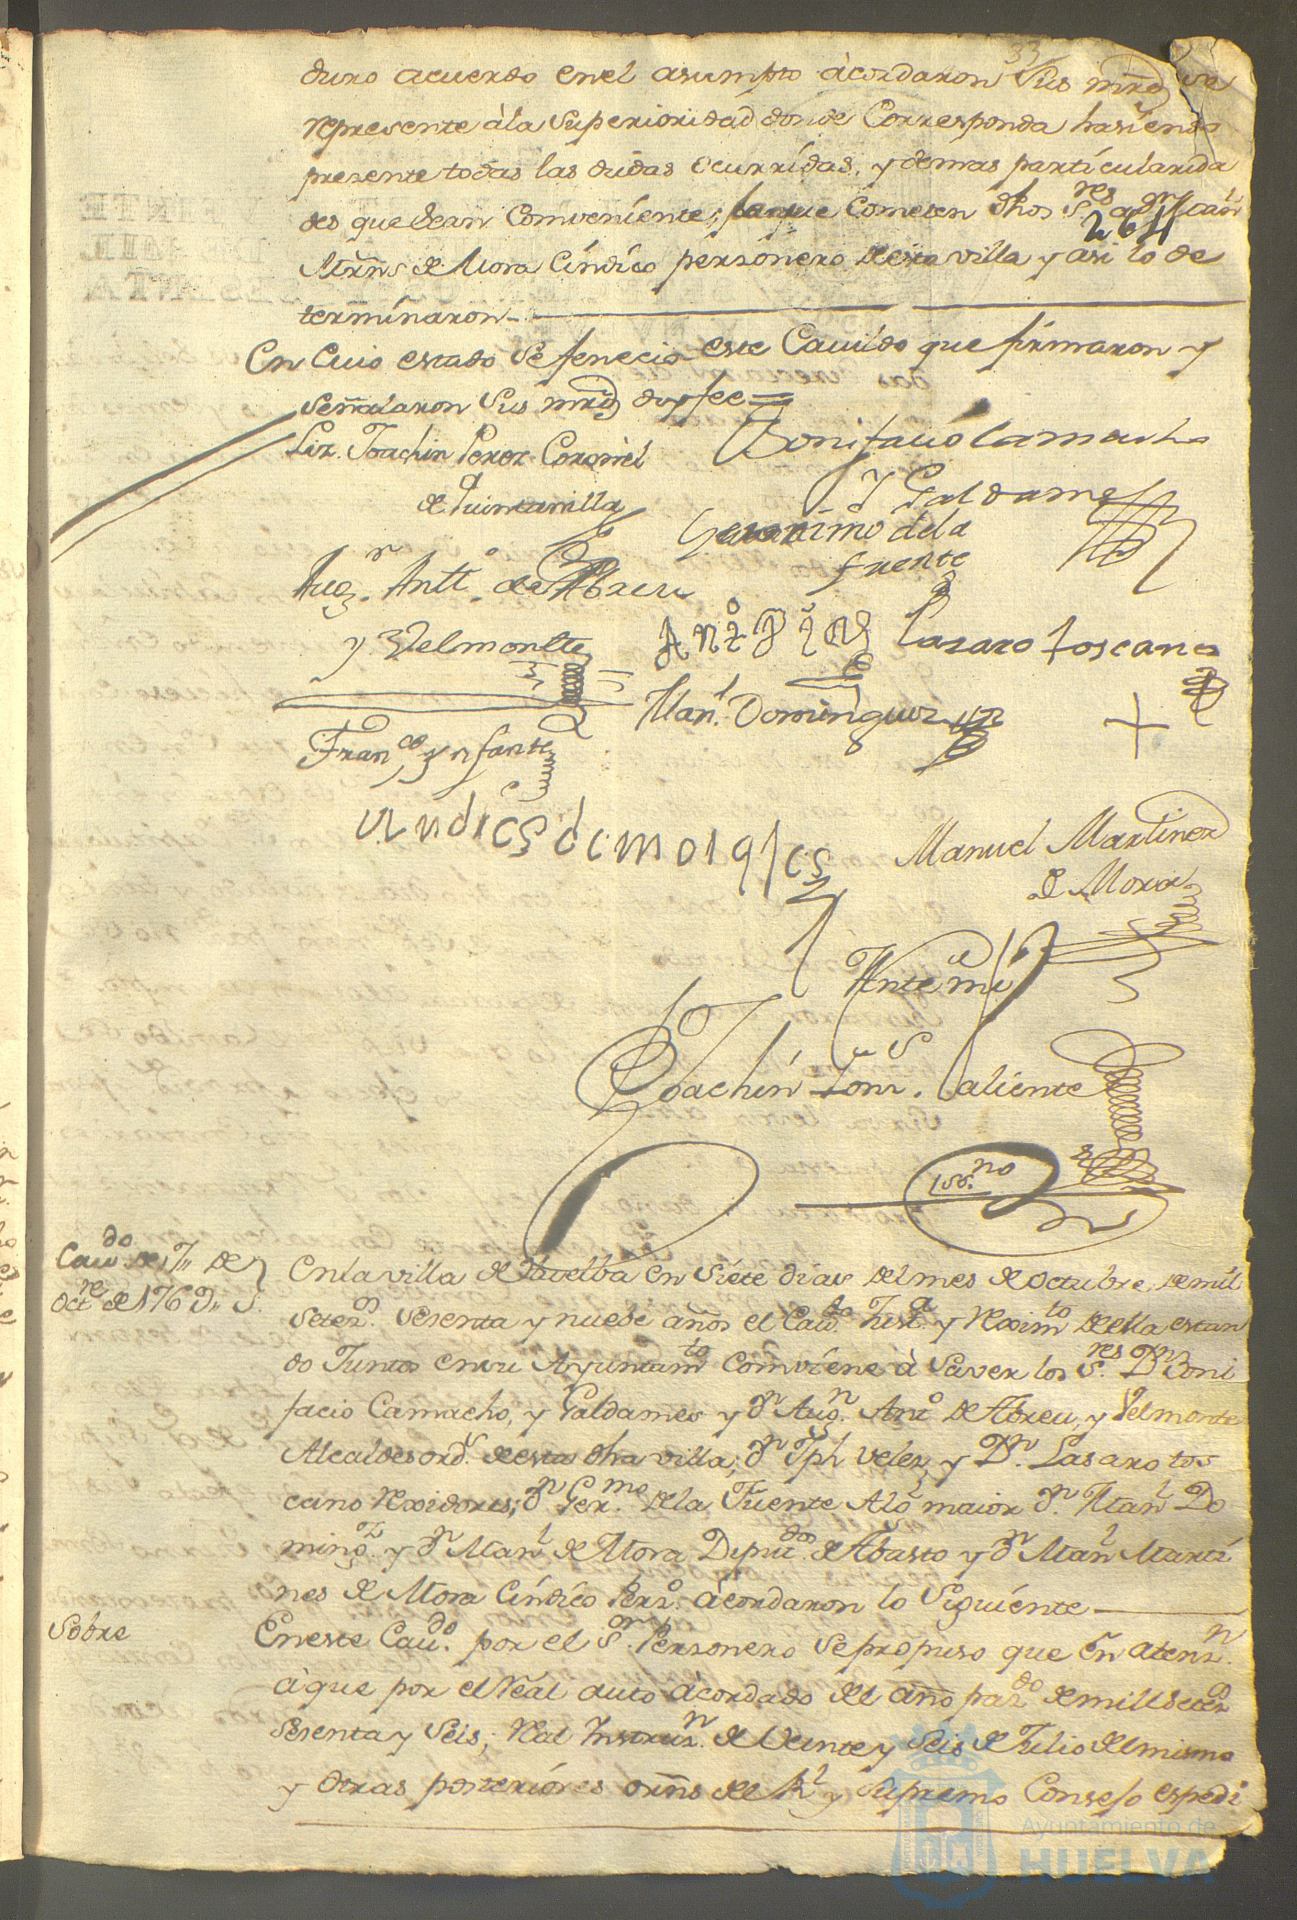 33
duro acuerdo enel asumpto àcordaron Sus mrds se
represente àla Superioridad donde Corresponda hasiendo
presente todas las dudas ocurrídas, y demas partícularida
des que Sean Conveniente; que Cometen dhos Sres a Dn Man
264
Mrns de Mora Cíndíco personero de esta villa y asi lo de
termínaron
En Cuio estado Se fenecio este Cauildo que fírmaron y
Señalaron Sus mrds doyfee
Liz. Joachin Perez Coronel
de Quintanilla
Bonifacio Camacho
y Galdames
Geronimo dela
Fuente
Augn. Antto. de Abreu
y Velmonte
Lazaro toscano
Manl. Dominguez
Franco. Ynfante
Andres de morales
Manuel Martinez
de Mora
Ante mi
Joachín Saliente
Essno
Caudo. de 7 de
Octre de 1769
Enla villa de Huelba en Síete días del mes de Octubre, de mil
Setezs. Sesenta y nuebe años el Caudo. Justa. y Reximto de ella estan
do Juntos en su Ayuntamto Comvíene à Saver los Sres. Dn Boni
facio Camacho, y Galdames y Dn Augn. Anto de Abreu, y Velmonte
Alcaldes ords. de esta dha villa; Dn Jph Velez, y Dn. Lasaro tos
cano Rexidores; Dn Germo. de la Fuente Alg maior Dn. Manl Do
mingz y Dn Manl de Mora Diputdos. de Abasto y Dn Manl Martí
nes de Mora Cíndíco Perzo. àcordaron lo Siguíente
Sobre
En este Caudo. por el Sor. Personero Se propuso que En atenzn.
à que por el Real auto àcordado del año pazdo de mill setezs
Sesenta y Seis; Real Instruzn. de Veinte y Seis de Julio del mismo
y Otras posteríores orns del Rl y Supremo Consejo espedi
Ayuntamiento de
HUELVA